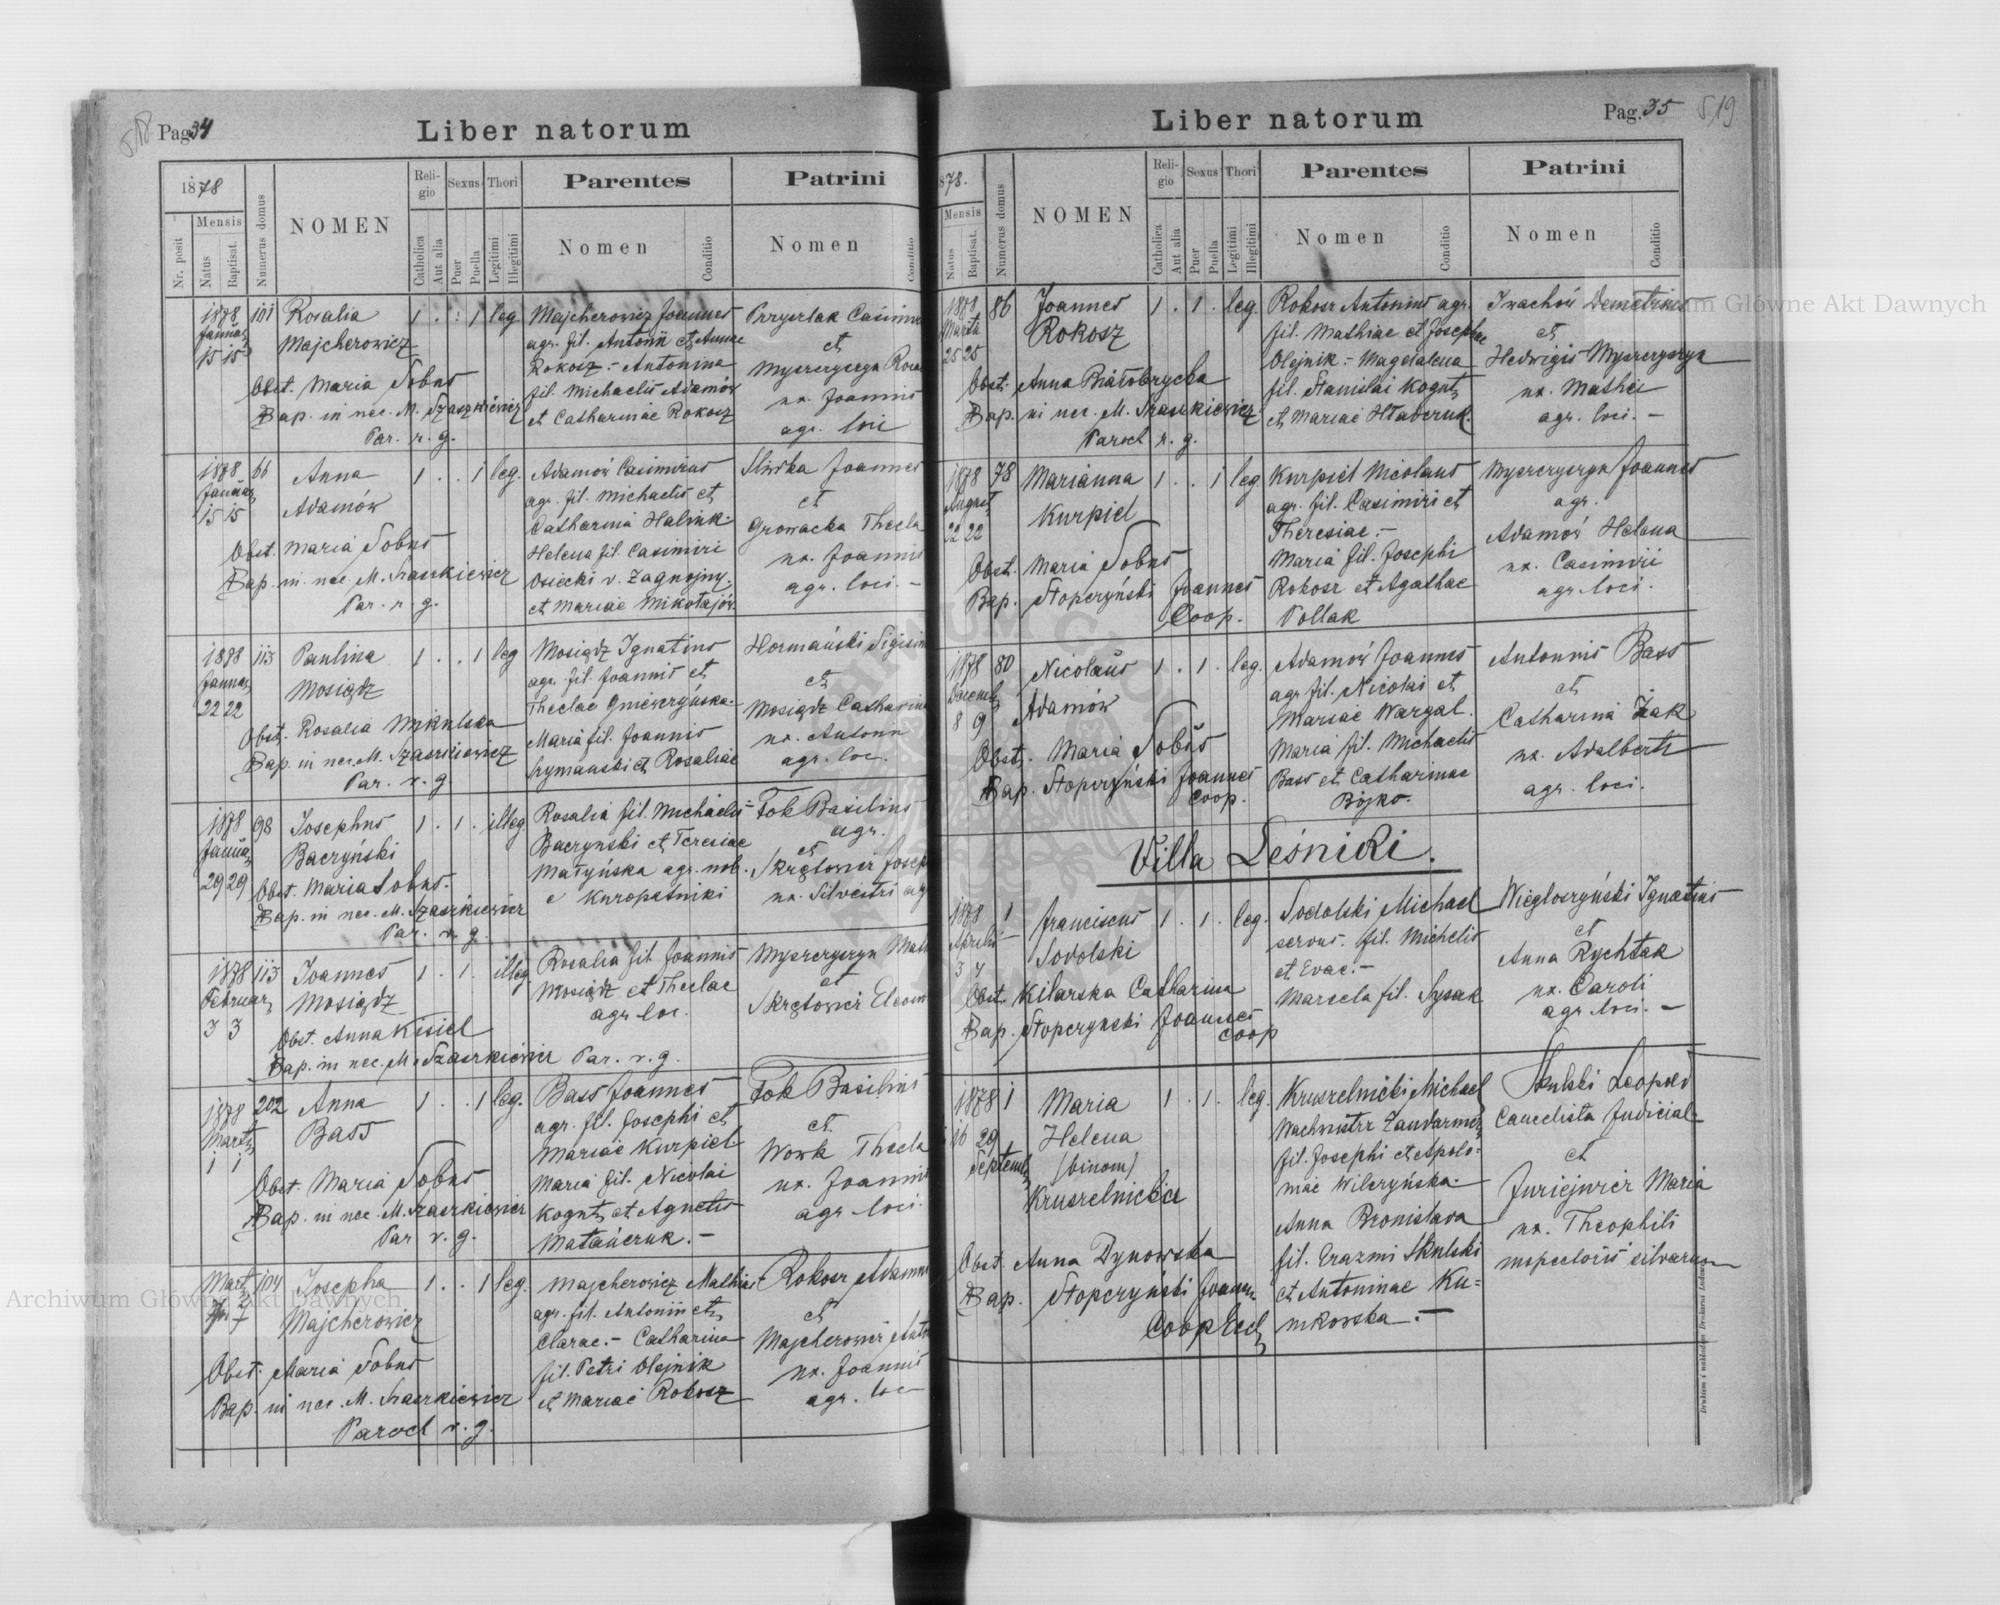 518 Pag. 34
Liber natorum
1878
Nr. posit
Mensis
Natus
Baptisat.
Numerus domus
NOMEN
Religio
Catholica
Aut alia
Sexus
Puer
Puella
Thori
Legitimi
Illegitimi
Parentes
Nomen
Conditio
Patrini
Nomen
Conditio
1878 101 Rosalia 1 . . 1 leg. Majcherowicz Joannes
Januar Majcherowicz agr. fil. Antonii et Annae
15 15 Rokosz - Antonina
Obst. Maria Sobus fil. Michaelis Adamów
Bap. in nec. M. Szaszkiewicz et Catharinae Rokosz
Par. r. g.
et
ux. Joannis
agr. loci
1878 66 Anna 1 . . 1 leg. Adamów Casimirus
Januar Adamów agr. fil. Michaelis et
15 15 Catharina Halink.
Obst. Maria Sobus Helena fil. Casimiri
Bap. in nec. M. Szaszkiewicz Osiecki v. Zagnojny
Par. r. g. et Mariae Mikołajów
Sliwka Joannes
et
Growacka Thecla
ux. Joannis
agr. loci. -
1878 113 Paulina 1 . . 1 leg Mosiądz Ignatius
Januar Mosiądz agr. fil. Joannis et
22 22 Theclae
Obst. Rosalia Mikulska Maria fil. Joannis
Bap. in nec. M. Szaszkiewicz et Rosaliae
Par. r. g.
Hormański
et
Mosiądz
ux. Antonii
agr. loc.
1878 98 Josephus 1 . 1 . illeg. Rosalia fil. Michaelis
Januar Baczyński Baczynski et Teresiae
29 29 Obst. Maria Sobus. Małyńska agr. nob.
Bap. in nec. M. Szaszkiewicz e Kuropatniki
Par. r. g.
Fok Basilius
agr.
et
ux. Silvestri
1878 113 Joannes 1 . 1 . illeg. Rosalia fil. Joannis
Februar Mosiądz Mosiądz et Theclae
3 3 agr. loc.
Obst. Anna Kisiel
Bap. in nec. M. Szaszkiewicz Par. r. g.
et
1878 202 Anna 1 . . 1 leg. Bass Joannes
Marti Bass agr. fil. Josephi et
1 1 Mariae Kurpiel
Obst. Maria Sobus Maria fil. Nicolai
Bap. in nec. M. Szaszkiewicz Kogut et Agnetis
Par r. g. Matańczuk. -
Fok Basilius
et
Work Thecla
ux. Joannis
agr. loci.
Mart. 104 Josepha 1 . . 1 leg. Majcherowicz Mathias
7 Majcherowicz agr. fil. Antonii et
Obst. Maria Sobus Clarae. - Catharina
Bap. in nec. M. Szaszkiewicz fil. Petri Olejnik
Paroch r. g. et Mariae Rokosz
Rokosz
et
Majcherowicz
ux. Joannis
agr. loc
Liber natorum
Pag. 35 519
1878.
Mensis
Natus
Baptisat.
Numerus domus
NOMEN
Religio
Catholica
Aut alia
Sexus
Puer
Puella
Thori
Legitimi
Illegitimi
Parentes
Nomen
Conditio
Patrini
Nomen
Conditio
1878 86 Joannes 1 . 1 . leg. Rokosz Antonius agr.
Martii Rokosz fil. Mathiae et Josephae
25 25 Olejnik - Magdalena
Obst. Anna Białobrycka fil. Stanislai Kogut
Bap. in nec. M. Szaszkiewicz et Mariae Hławczuk.
Paroch r. g.
Iwachów Demetrius
et
Hedvigis Myszczyszyn
ux. Mathei
agr. loci. -
1878 78 Marianna 1 . . 1 leg Kurpiel Nicolaus
August Kurpiel agr. fil. Casimiri et
22 22 Theresiae. -
Obst. Maria Sobus Maria fil. Josephi
Bap. Stopczyński Joannes Rokosz et Agathae
Coop. Pollak
Myszczyszyn Joannes
agr.
Adamów Helena
ux. Casimiri
agr. loci.
1878 80 Nicolaus 1 . 1 . leg. Adamów Joannes
Decemb. Adamów agr. fil. Nicolai et
8 9 Mariae Wargal.
Obst. Maria Sobus Maria fil. Michaelis
Bap. Stopczyński Joannes Bass et Catharinae
Coop. Bojko.
Antonius Bass
et
Catharina Żak
ux. Adalberti
agr. loci.
Villa Leśniki.
1878 1 Franciscus 1 . 1 . leg. Sodolski Michael
Aprilis Sodolski servus. fil. Michelis
3 4 et Evae. -
Obst. Kilarska Catharina Marcela fil. Sysak
Bap. Stopczynski Joannes
Coop
Ignatius
et
Anna Rychtak
ux. Caroli
agr. loci. -
1878 1 Maria 1 . 1 . leg. Kruszelnicki Michael
16 29 Helena Wachmistrz Żandarmer.
Septemb. (binom) fil. Josephi et Apolo-
Kruszelnicka niae Wilczyńska.
Anna Bronislava
Obst. Anna Dynowska fil. Erazmi Skulski
Bap. Stopczyński Joann. et Antoninae Ku-
Coop Eccl. nikowska. -
Skulski Leopold
Cancelista Judicial.
et
Juriejwicz Maria
ux. Theophili
inspectoris silvarum
Archiwum Główne Akt Dawnych
Archiwum Główne Akt Dawnych